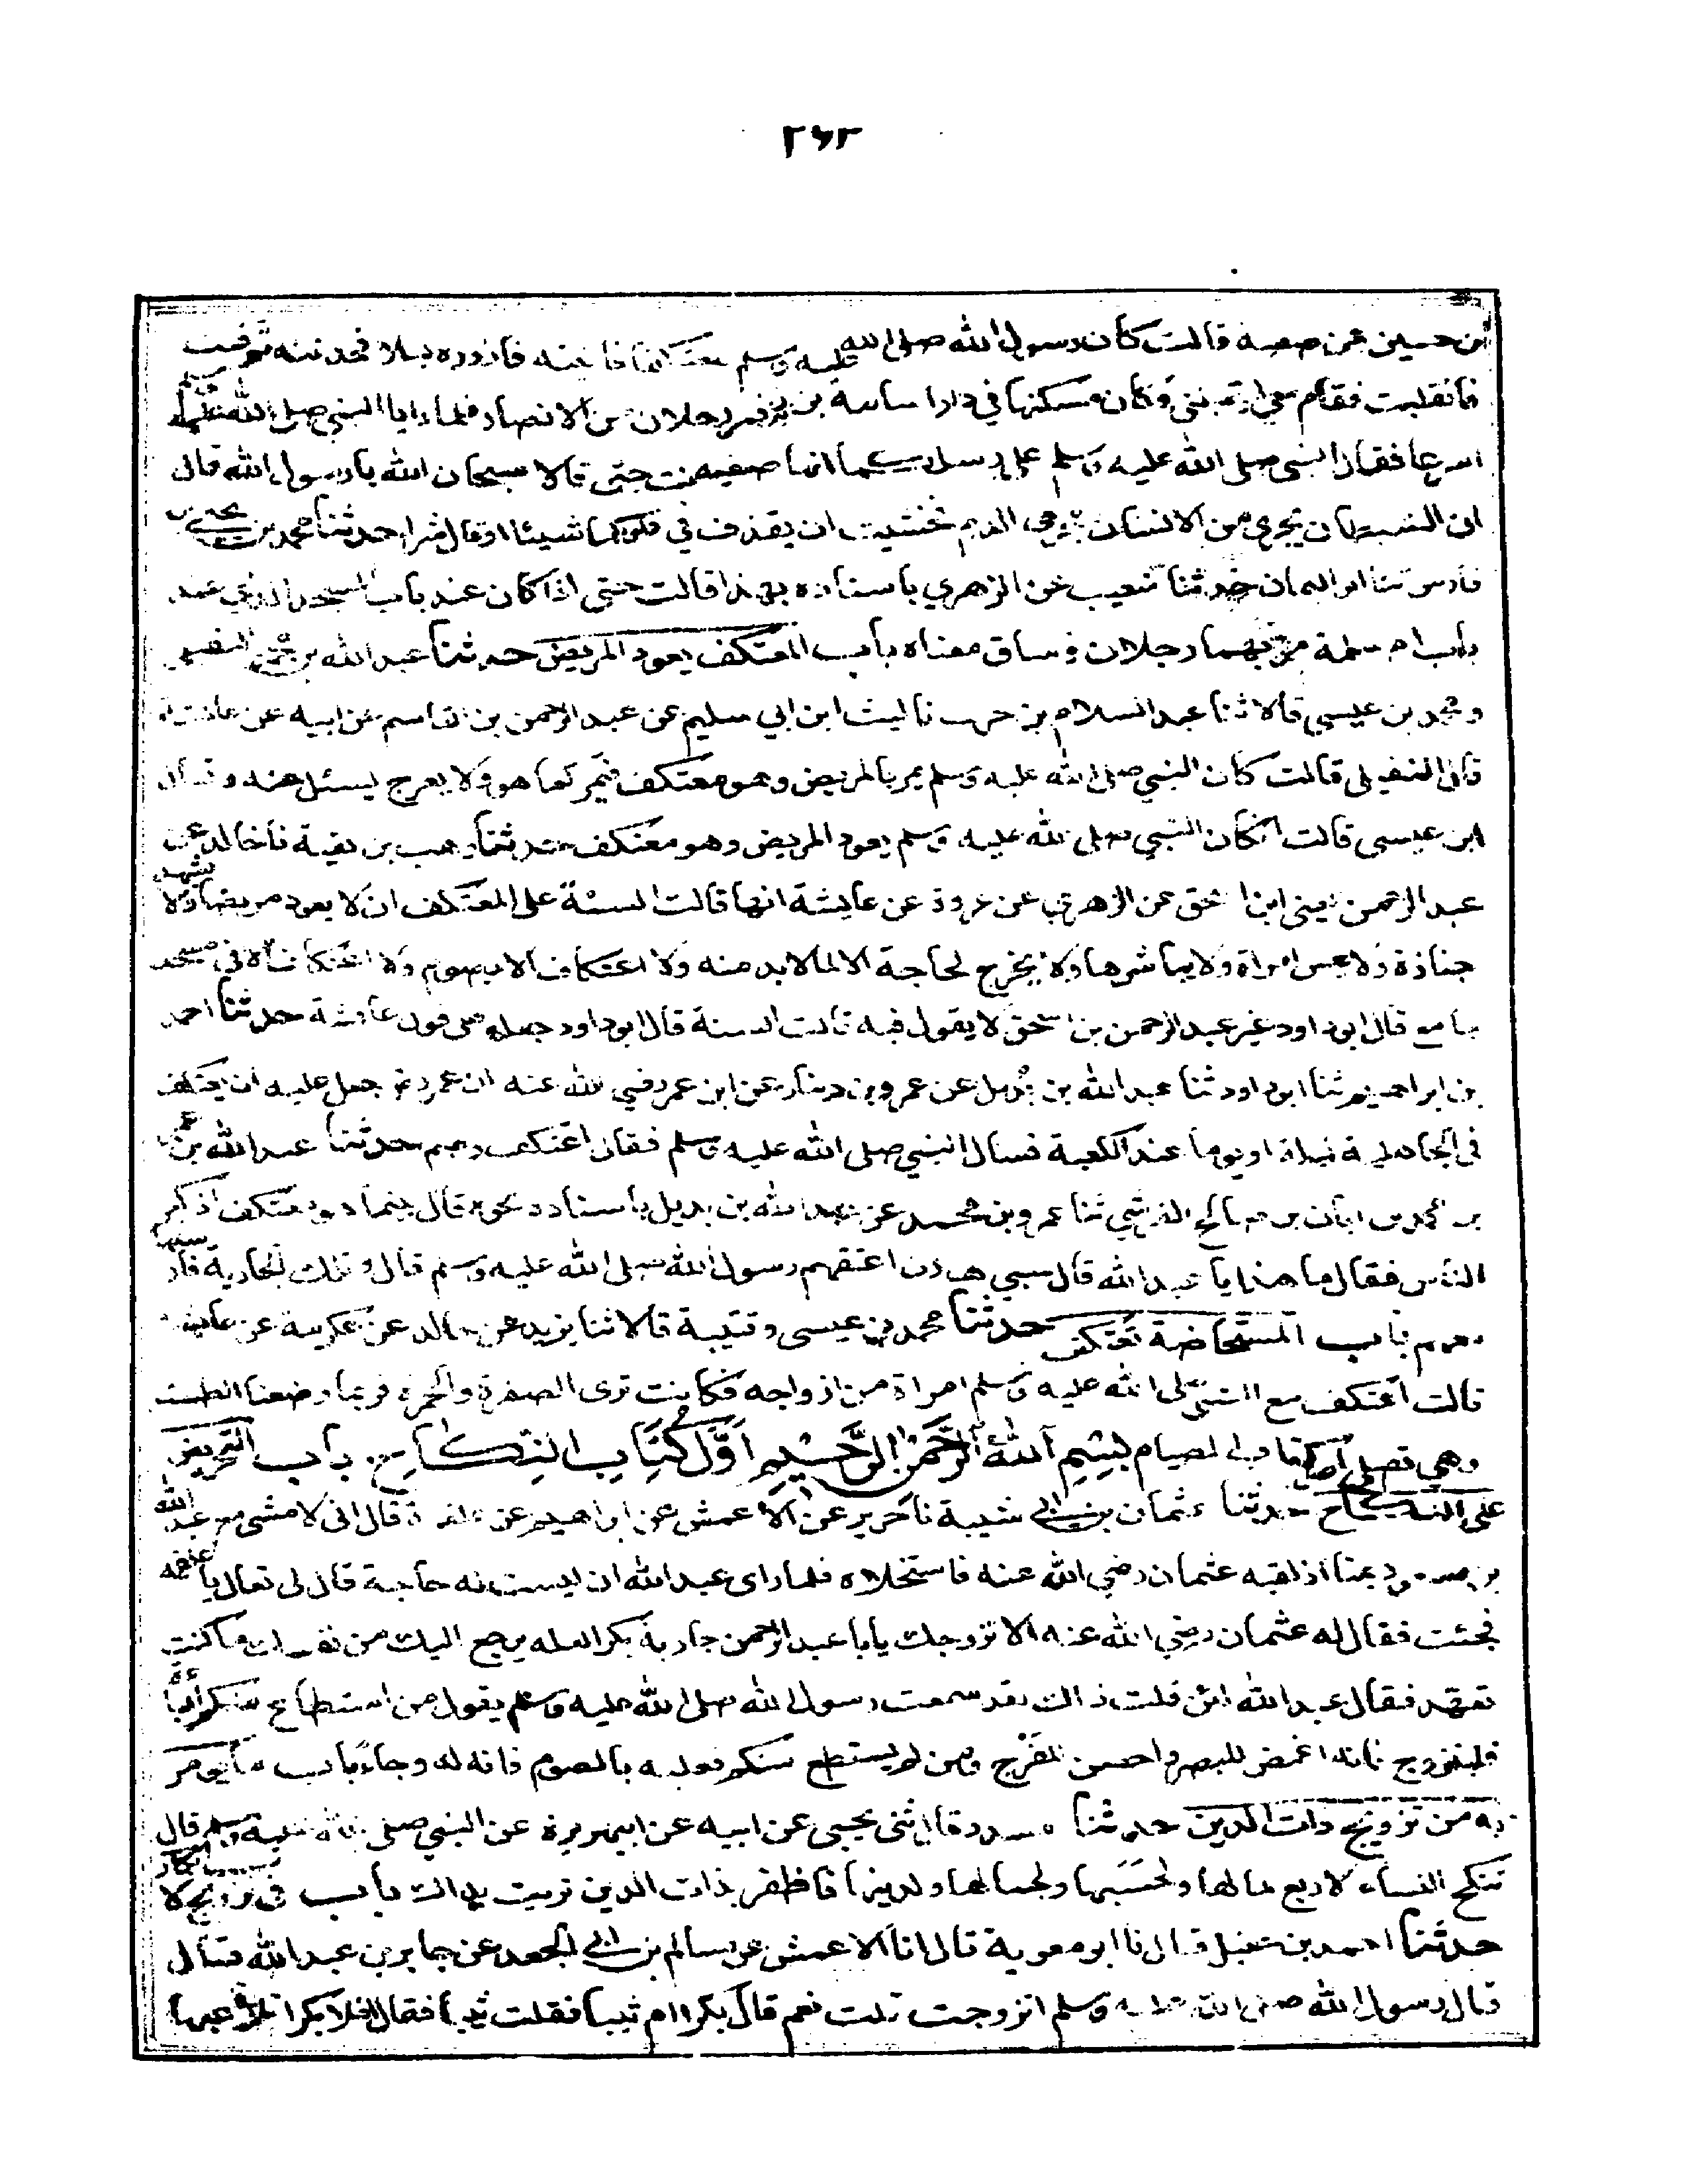 ٢٦٢
بن حسين عن صفية قالت كان رسول الله صلى الله عليه وسلم معتكفا فاتيته فازوره ليلا فحدثته ثم قمت
فانقلبت فقام معي ليقلبني وكان مسكنها في دار اسامة بن زيد فمر رجلان من الانصار فلما رايا النبي صلى الله عليه وسلم
اسرعا فقال النبي صلى الله عليه وسلم على رسلكما انها صفية بنت حيي قالا سبحان الله يا رسول الله قال
ان الشيطان يجري من الانسان مجرى الدم فخشيت ان يقذف في قلوبكما شيئا او قال شرا حدثنا محمد بن يحيى بن
فارس ثنا ابو اليمان حدثنا شعيب عن الزهري باسناده بهذا قالت حتى اذا كان عند باب المسجد الذي عند
باب ام سلمة مر بهما رجلان وساق معناه باب المعتكف يعود المريض حدثنا عبد الله بن محمد النفيلي
ومحمد بن عيسى قالا ثنا عبد السلام بن حرب نا ليث ابن ابي سليم عن عبد الرحمن بن القاسم عن ابيه عن عائشة
قال النفيلي قالت كان النبي صلى الله عليه وسلم يمر بالمريض وهو معتكف فيمر كما هو ولا يعرج يسئل عنه وقال
ابن عيسى قالت ان كان النبي صلى الله عليه وسلم يعود المريض وهو معتكف حدثنا وهب بن بقية نا خالد عن
عبد الرحمن يعني ابن اسحق عن الزهري عن عروة عن عايشة انها قالت السنة على المعتكف ان لا يعود مريضا ولا يشهد
جنازة ولا يمس امراة ولا يباشرها ولا يخرج لحاجة الا لما لا بد منه ولا اعتكاف الا بصوم ولا اعتكاف الا في مسجد
جامع قال ابو داود غير عبد الرحمن بن اسحق لا يقول فيه قالت السنة قال ابو داود جعله من قول عائشة حدثنا احمد
بن ابراهيم ثنا ابو داود ثنا عبد الله بن بديل عن عمرو بن دينار عن ابن عمر رضي الله عنه ان عمر رضي جعل عليه ان يعتكف
في الجاهلية ليلة او يوما عند الكعبة فسال النبي صلى الله عليه وسلم فقال اعتكف وصم حدثنا عبد الله بن عمر
بن محمد بن ابان بن صالح القرشي ثنا عمرو بن محمد عن عبد الله بن بديل باسناده نحوه قال بينما هو معتكف اذ كبر
الناس فقال ما هذا يا عبد الله قال سبي هوازن اعتقهم رسول الله صلى الله عليه وسلم قال وتلك الجارية فارسلها
معهم باب المستحاضة تعتكف حدثنا محمد بن عيسى وقتيبة قالا ثنا يزيد عن خالد عن عكرمة عن عايشة
قالت اعتكف مع النبي صلى الله عليه وسلم امراة من ازواجه فكانت ترى الصفرة والحمرة فربما وضعنا الطست
وهي تصلي اخر كتاب الصيام بِسْمِ اللَّهِ الرَّحْمَنِ الرَّحِيمِ اَوَّل كِتَاب النِكَاحِ باب التحريض
على النكاح حدثنا عثمان بن ابي شيبة نا جرير عن الاعمش عن ابراهيم عن علقمة قال اني لامشي مع عبد الله
بن مسعود بمنا اذ لقيه عثمان رضي الله عنه فاستخلاه فلما راى عبد الله ان ليست له حاجة قال لي تعال يا علقمة
فجئت فقال له عثمان رضي الله عنه الا نزوجك يا با عبد الرحمن جارية بكرا لعله يرجع اليك من نفسك ما كنت
تعهد فقال عبد الله لئن قلت ذاك لقد سمعت رسول الله صلى الله عليه وسلم يقول من استطاع منكم الباءة
فليتزوج فانه اغض للبصر واحصن للفرج ومن لم يستطع منكم فعليه بالصوم فانه له وجاء باب ما يؤمر
به من تزويج ذات الدين حدثنا مسدد قال ثني يحيى عن ابيه عن ابي هريرة عن النبي صلى الله عليه وسلم قال
تنكح النساء لاربع لمالها ولحسبها ولجمالها ولدينها فاظفر بذات الدين تربت يداك باب في تزويج الابكار
حدثنا احمد بن حنبل قال نا ابو معوية قال انا الاعمش عن سالم بن ابي الجعد عن جابر بن عبد الله قال
قال رسول الله صلى الله عليه وسلم اتزوجت قلت نعم قال بكرا ام ثيبا فقلت ثيبا فقال افلا بكرا تلاعبها